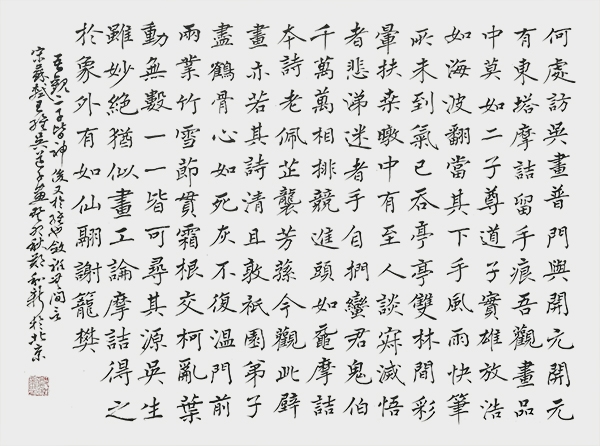 何處訪吳畫普門與開元開元
有東塔摩詰留手痕吾觀畫品
中莫如二子尊道子實雄放浩
如海波翻當其下手風雨快筆
所未到氣已吞亭亭雙林間彩
暈扶桑暾中有至人談寂滅悟
者悲涕迷者手自捫蠻君鬼伯
千萬萬相排競進頭如黿摩詰
本詩老佩芷襲芳蓀今觀此壁
畫亦若其詩清且敦祇園弟子
盡鶴骨心如死灰不復溫門前
兩叢竹雪節貫霜根交柯亂葉
動無數一一皆可尋其源吳生
雖妙絕猶似畫工論摩詰得之
於象外有如仙翮謝籠樊
吾觀二子皆神俊又於維也斂衽無間言
宋蘇軾王維吳道子畫癸卯秋和新於北京